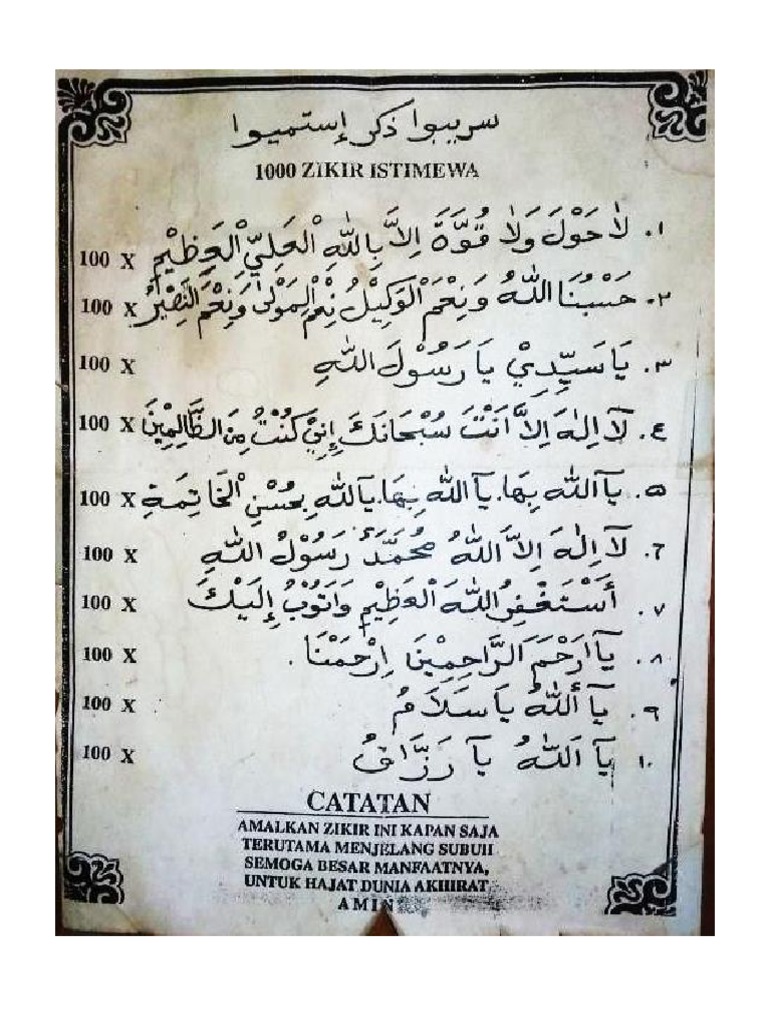 سريبوا ذكر إستميوا
1000 ZIKIR ISTIMEWA
١. لاَحَوْلَ وَلاَ قُوَّةَ اِلاَّ بِاللهِ الْعَلِيِّ الْعَظِيْمِ 100 X
٢. حَسْبُنَا اللهُ وَنِعْمَ الْوَكِيْلُ نِعْمَ الْمَوْلَى وَنِعْمَ النَّصِيْرُ 100 X
٣. يَاسَيِّدِيْ يَارَسُوْلَ اللهِ 100 X
٤. لَآاِلٰهَ اِلاَّ اَنْتَ سُبْحَانَكَ إِنِّيْ كُنْتُ مِنَ الظَّالِمِيْنَ 100 X
٥. يَآاَللهُ بِهَا. يَآاَللهُ بِهَا. يَآاَللهُ بِحُسْنِ الْخَاتِمَةِ 100 X
٦. لَآاِلٰهَ اِلاَّاللهُ مُحَمَّدٌ رَسُوْلُ اللهِ 100 X
٧. أَسْتَغْفِرُاللهَ الْعَظِيْمِ وَاَتُوْبُ إِلَيْكَ 100 X
٨. يَآاَرْحَمَ الرَّاحِمِيْنَ اِرْحَمْنَا. 100 X
٩. يَآأَللهُ يَاسَلَامُ 100 X
١٠. يَآ اَللهُ يَآ رَزَّاقُ 100 X
CATATAN
AMALKAN ZIKIR INI KAPAN SAJA
TERUTAMA MENJELANG SUBUH
SEMOGA BESAR MANFAATNYA,
UNTUK HAJAT DUNIA AKHIRAT
AMIN